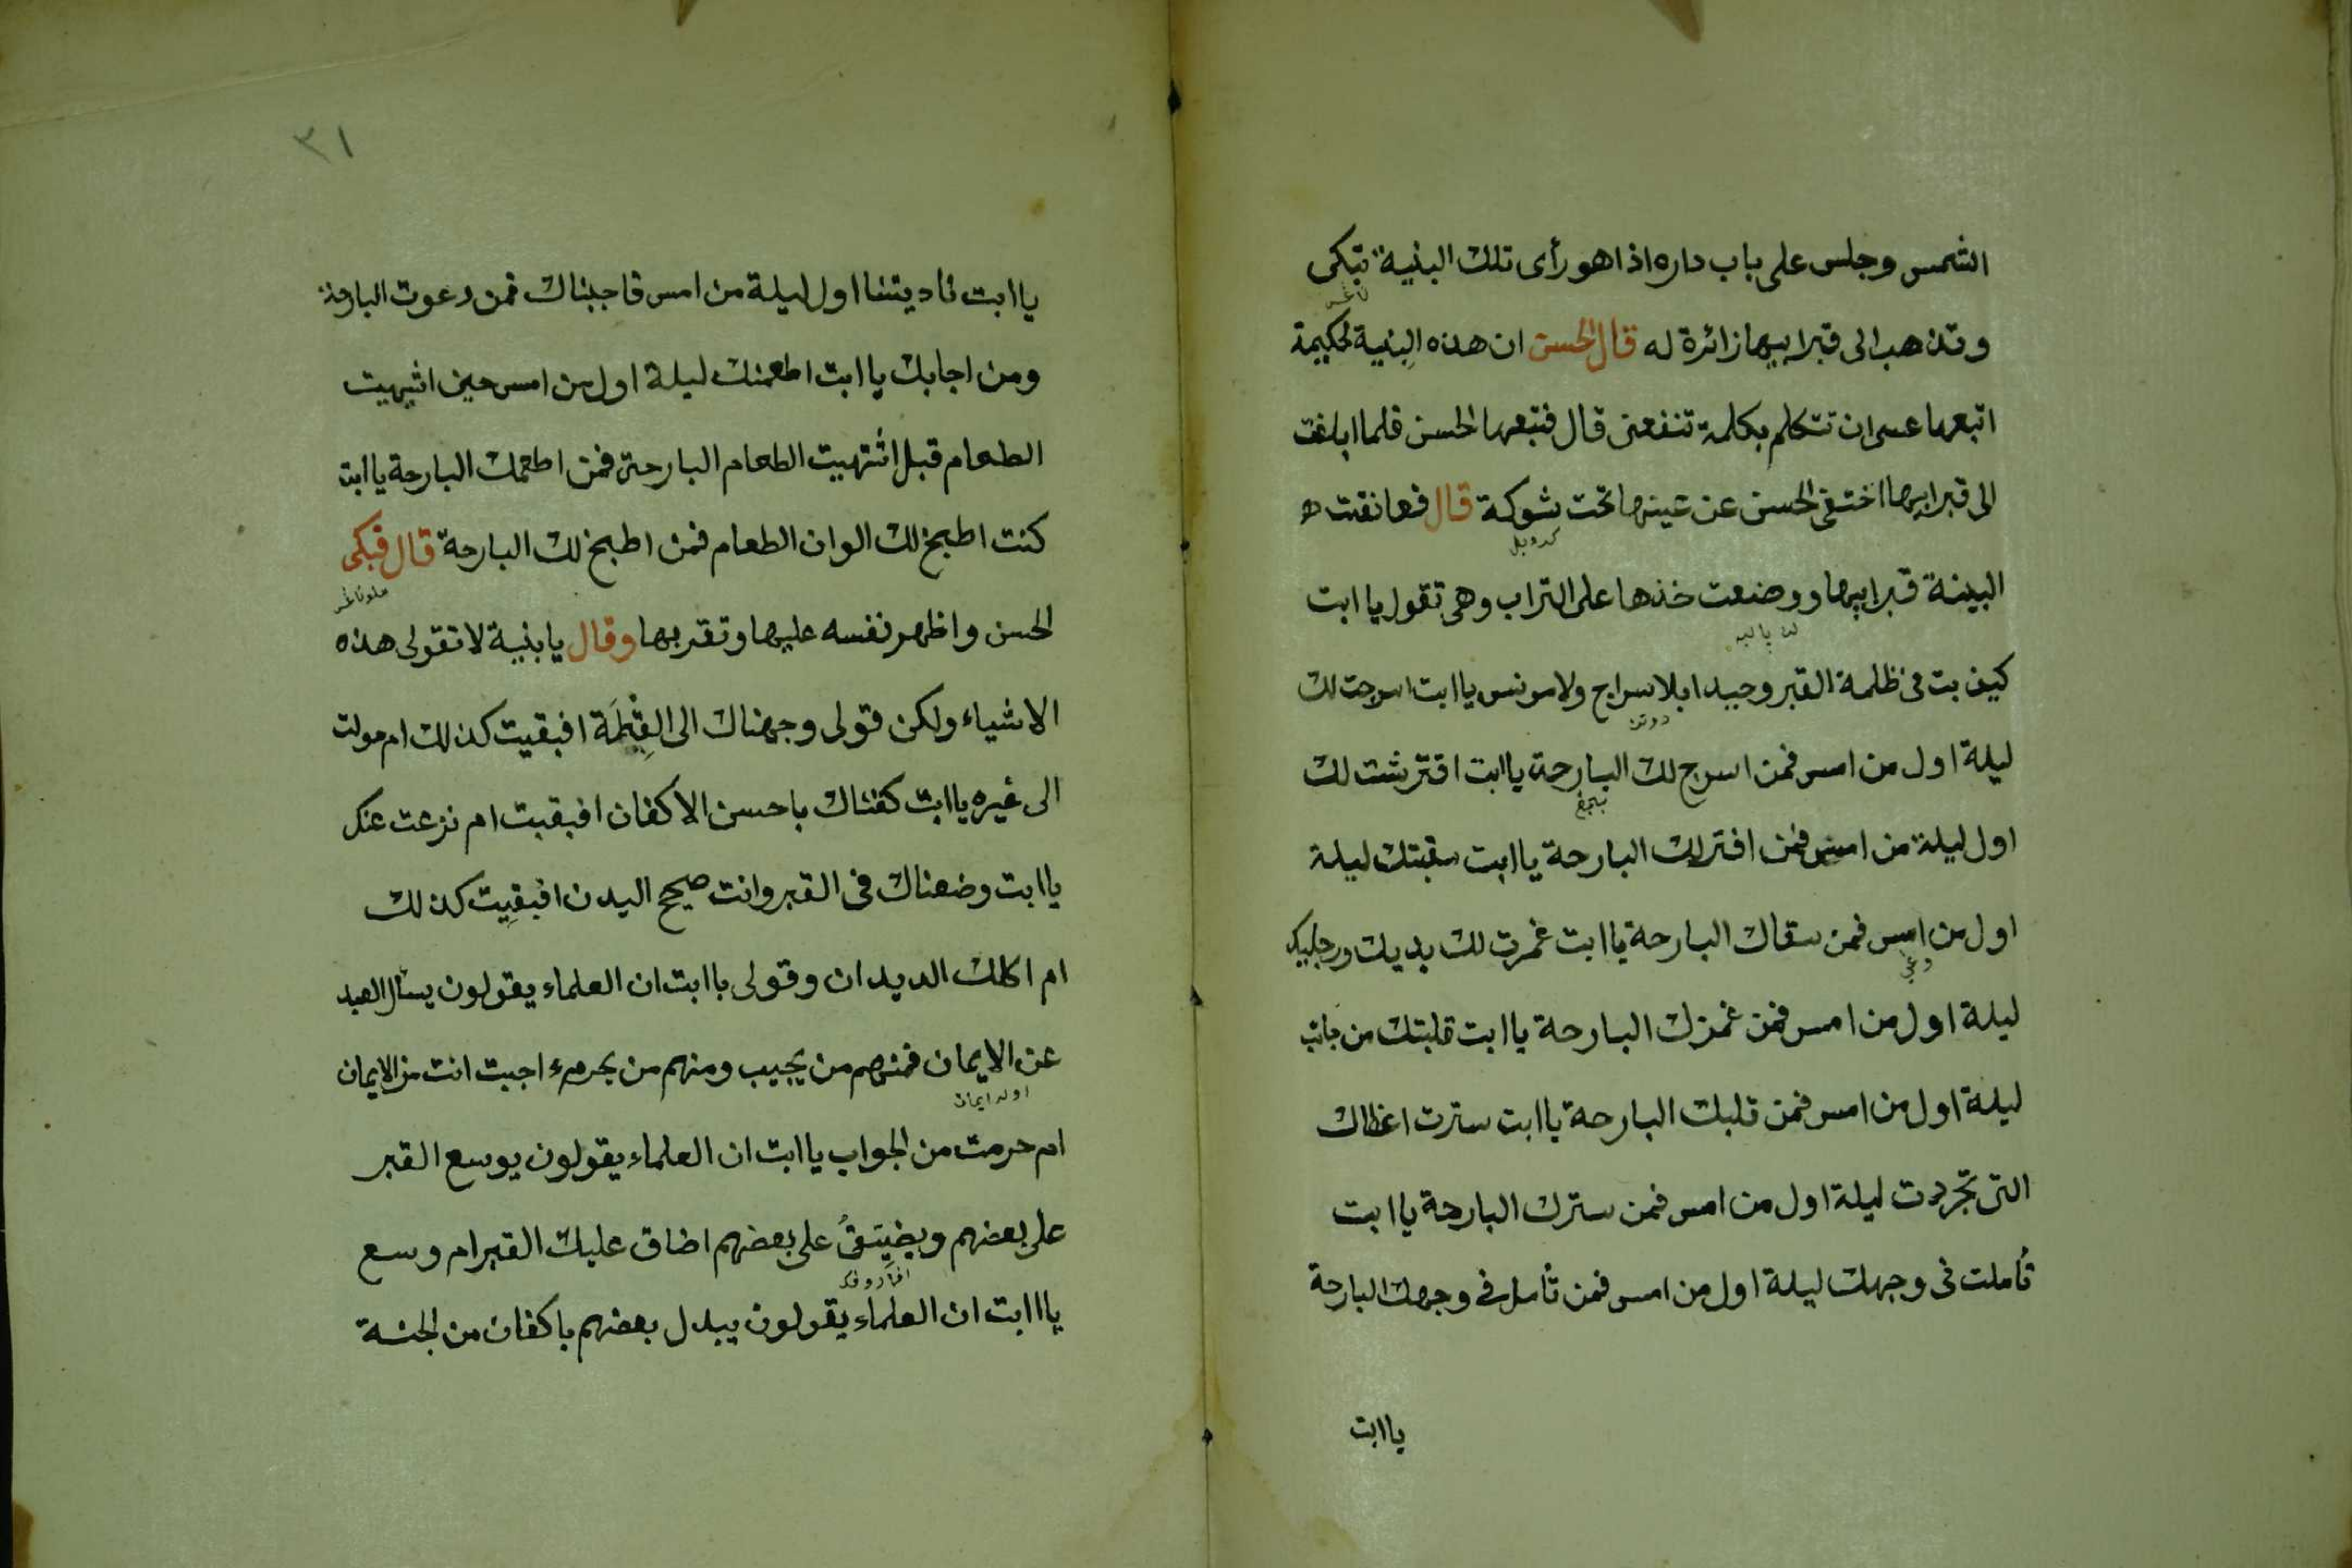 الشمس وجلس على باب داره اذا هو رأى تلك البنية تبكى
وتذهب الى قبر ابيها زائرة له قال الحسن ان هذه البنية لحكيمة
اتبعها عسى ان تتكلم بكلمة تنفعنى قال فتبعها الحسن فلما ابلغت
الى قبر ابيها اختفى الحسن عن عينها تحت شوكة قال فعانقت ه
البينة قبر ابيها ووضعت خذها على التراب وهى تقول يا ابت
كيف بت فى ظلمة القبر وحيدا بلا سراج ولا مونس يا ابت اسرجت لك
ليلة اول من امس فمن اسرج لك البارحة يا ابت افترشت لك
اول ليلة من امس فمن افترلك البارحة يا ابت سقيتك ليلة
اول من امس فمن سقاك البارحة يا ابت غمرت لك يديك ورجليك
ليلة اول من امس فمن غمزك البارحة يا ابت قلبتك من جانب
ليلة اول من امس فمن قلبك البارحة يا ابت سترت اعظاك
التى تجردت ليلة اول من امس فمن سترك البارحة يا ابت
تأملت فى وجهك ليلة اول من امس فمن تأمل فى وجهك البارحة
يا ابت
٣١
يا ابت ناديتنا اول ليلة من امس فاجبناك فمن دعوت البارحة
ومن اجابك يا ابت اطعمتك ليلة اول من امس حين اشهيت
الطعام قبل اشتهيت الطعام البارحة فمن اطعمك البارحة يا ابت
كنت اطبخ لك الوان الطعام فمن اطبخ لك البارحة قال فبكى
الحسن واظهر نفسه عليها وتقربها وقال يا بنية لا تقولى هذه
الاشياء ولكن قولى وجهناك الى القبلة افبقيت كذلك ام حولت
الى غيره يا ابت كفناك باحسن الاكفان افبقيت ام نزعت عنك
يا ابت وضعناك فى القبر وانت صحيح البدن افبقيت كذلك
ام اكلك الديدان وقولى يا ابت ان العلماء يقولون يسأل العبد
عن الايمان فمنهم من يجيب ومنهم من يحرم اجبت انت من الايمان
اولد ايمان
ام حرمت من الجواب يا ابت ان العلماء يقولون يوسع القبر
على بعضهم ويضيّقُ على بعضهم اضاق عليك القبر ام وسع
يا اابت ان العلماء يقولون يبدل بعضهم باكفان من الجنة